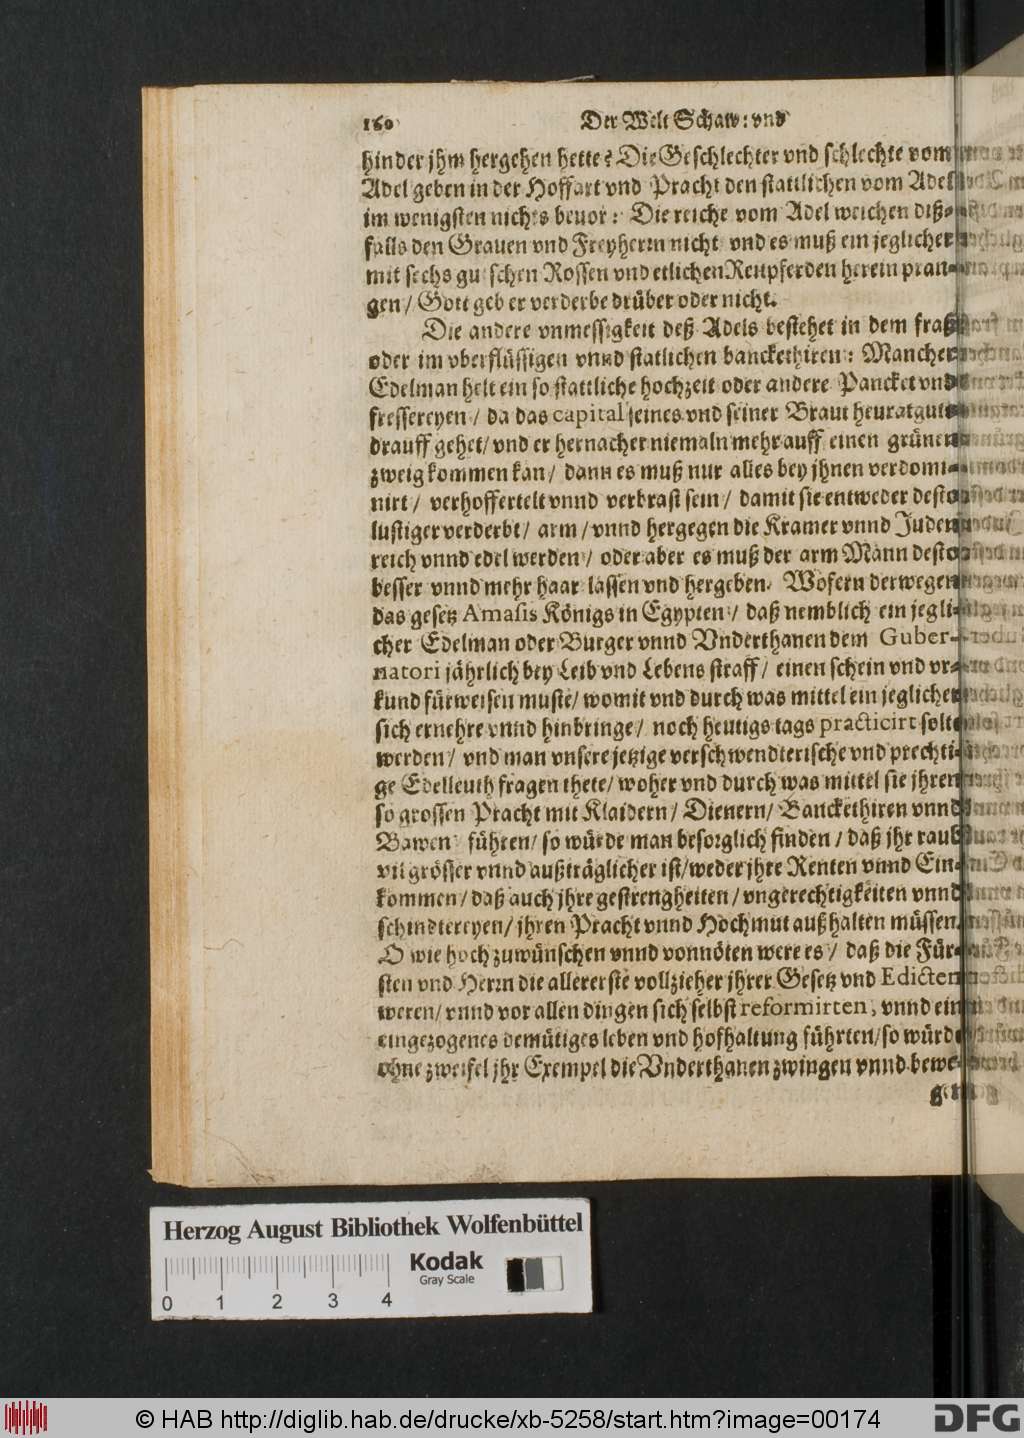 160 Der Welt Schaw: vnd
hinder jhm hergehen hette? Die Geschlechter vnd schlechte vom
Adel geben in der Hoffart vnd Pracht den stattlichen vom Adel
im wenigsten nichts beuor: Die reiche vom Adel weichen diß-
falls den Grauen vnd Freyherrn nicht vnd es muß ein jeglicher
mit sechs gutschen Rossen vnd etlichen Reitpferden herein pran-
gen / Gott geb er verderbe drüber oder nicht.
Die andere vnmessigkeit deß Adels bestehet in dem fraß
oder im vberflüssigen vnnd statlichen banckethiren: Mancher
Edelman helt ein so stattliche hochzeit oder andere Pancket vnd
fressereyen / da das capital seines vnd seiner Braut heuratguts
drauff gehet / vnd er hernacher niemaln mehr auff einen grünen
zweig kommen kan / dann es muß nur alles bey jhnen verdomi-
nirt / verhoffertelt vnnd verbrast sein / damit sie entweder desto
lustiger verderbt / arm / vnnd hergegen die Kramer vnnd Juden
reich vnnd edel werden / oder aber es muß der arm Mann desto
besser vnnd mehr haar lassen vnd hergeben. Wofern derwegen
das gesetz Amasis Königs in Egypten / daß nemblich ein jegli-
cher Edelman oder Burger vnnd Vnderthanen dem Guber-
natori jährlich bey Leib vnd Lebens straff / einen schein vnd vr-
kund fürweisen muste / womit vnd durch was mittel ein jeglicher
sich ernehre vnnd hinbringe / noch heutigs tags practicirt solte
werden / vnd man vnsere jetzige verschwendterische vnd prechti-
ge Edelleuth fragen thete / woher vnd durch was mittel sie jhren
so grossen Pracht mit Klaidern / Dienern / Banckethiren vnnd
Bawen führen / so würde man besorglich finden / daß jhr raub
vil grösser vnnd außträglicher ist / weder jhre Renten vnnd Ein-
kommen / daß auch jhre gestrengheiten / vngerechtigkeiten vnnd
schindtereyen / jhren Pracht vnnd Hochmut außhalten müssen.
O wie hoch zuwünschen vnnd vonnöten were es / daß die Für-
sten vnd Herrn die allererste vollzieher jhrer Gesetz vnd Edicten
weren / vnnd vor allen dingen sich selbst reformirten, vnnd ein
eingezogenes demütiges leben vnd hofhaltung führten / so würde
ohne zweifel jhr Exempel die Vnderthanen zwingen vnnd bewe-
gen
Herzog August Bibliothek Wolfenbüttel
Kodak
Gray Scale
0 1 2 3 4
© HAB http://diglib.hab.de/drucke/xb-5258/start.htm?image=00174
DFG